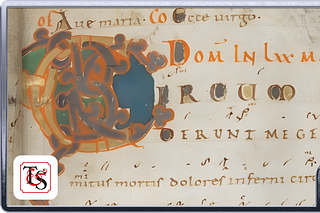 of Aue maria. Co Ecce uirgo.
Dom IN Lxx M
CIRCUM
DERUNT ME GE
mitus mortis dolores inferni circ
TS